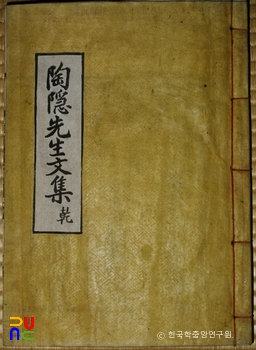 陶隠先生文集 乾
PUNC
ⓒ 한국학중앙연구원